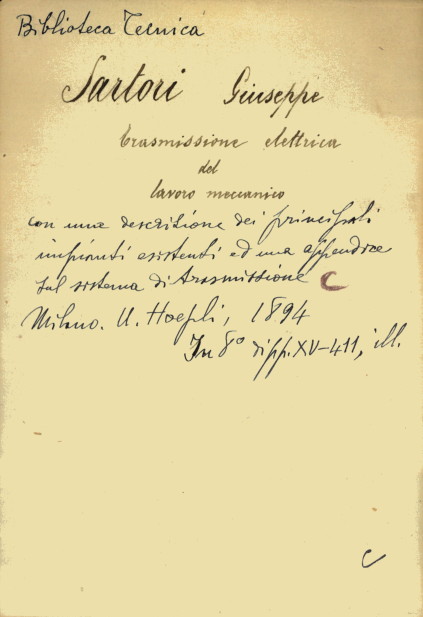 Biblioteca Tecnica
Sartori Giuseppe
Trasmissione elettrica
del
lavoro meccanico
con una descrizione dei principali
impianti esistenti ed una appendice
sul sistema di trasmissione C
Milano. U. Hoepli, 1894
In 8° di pp. XV-411, ill.
C